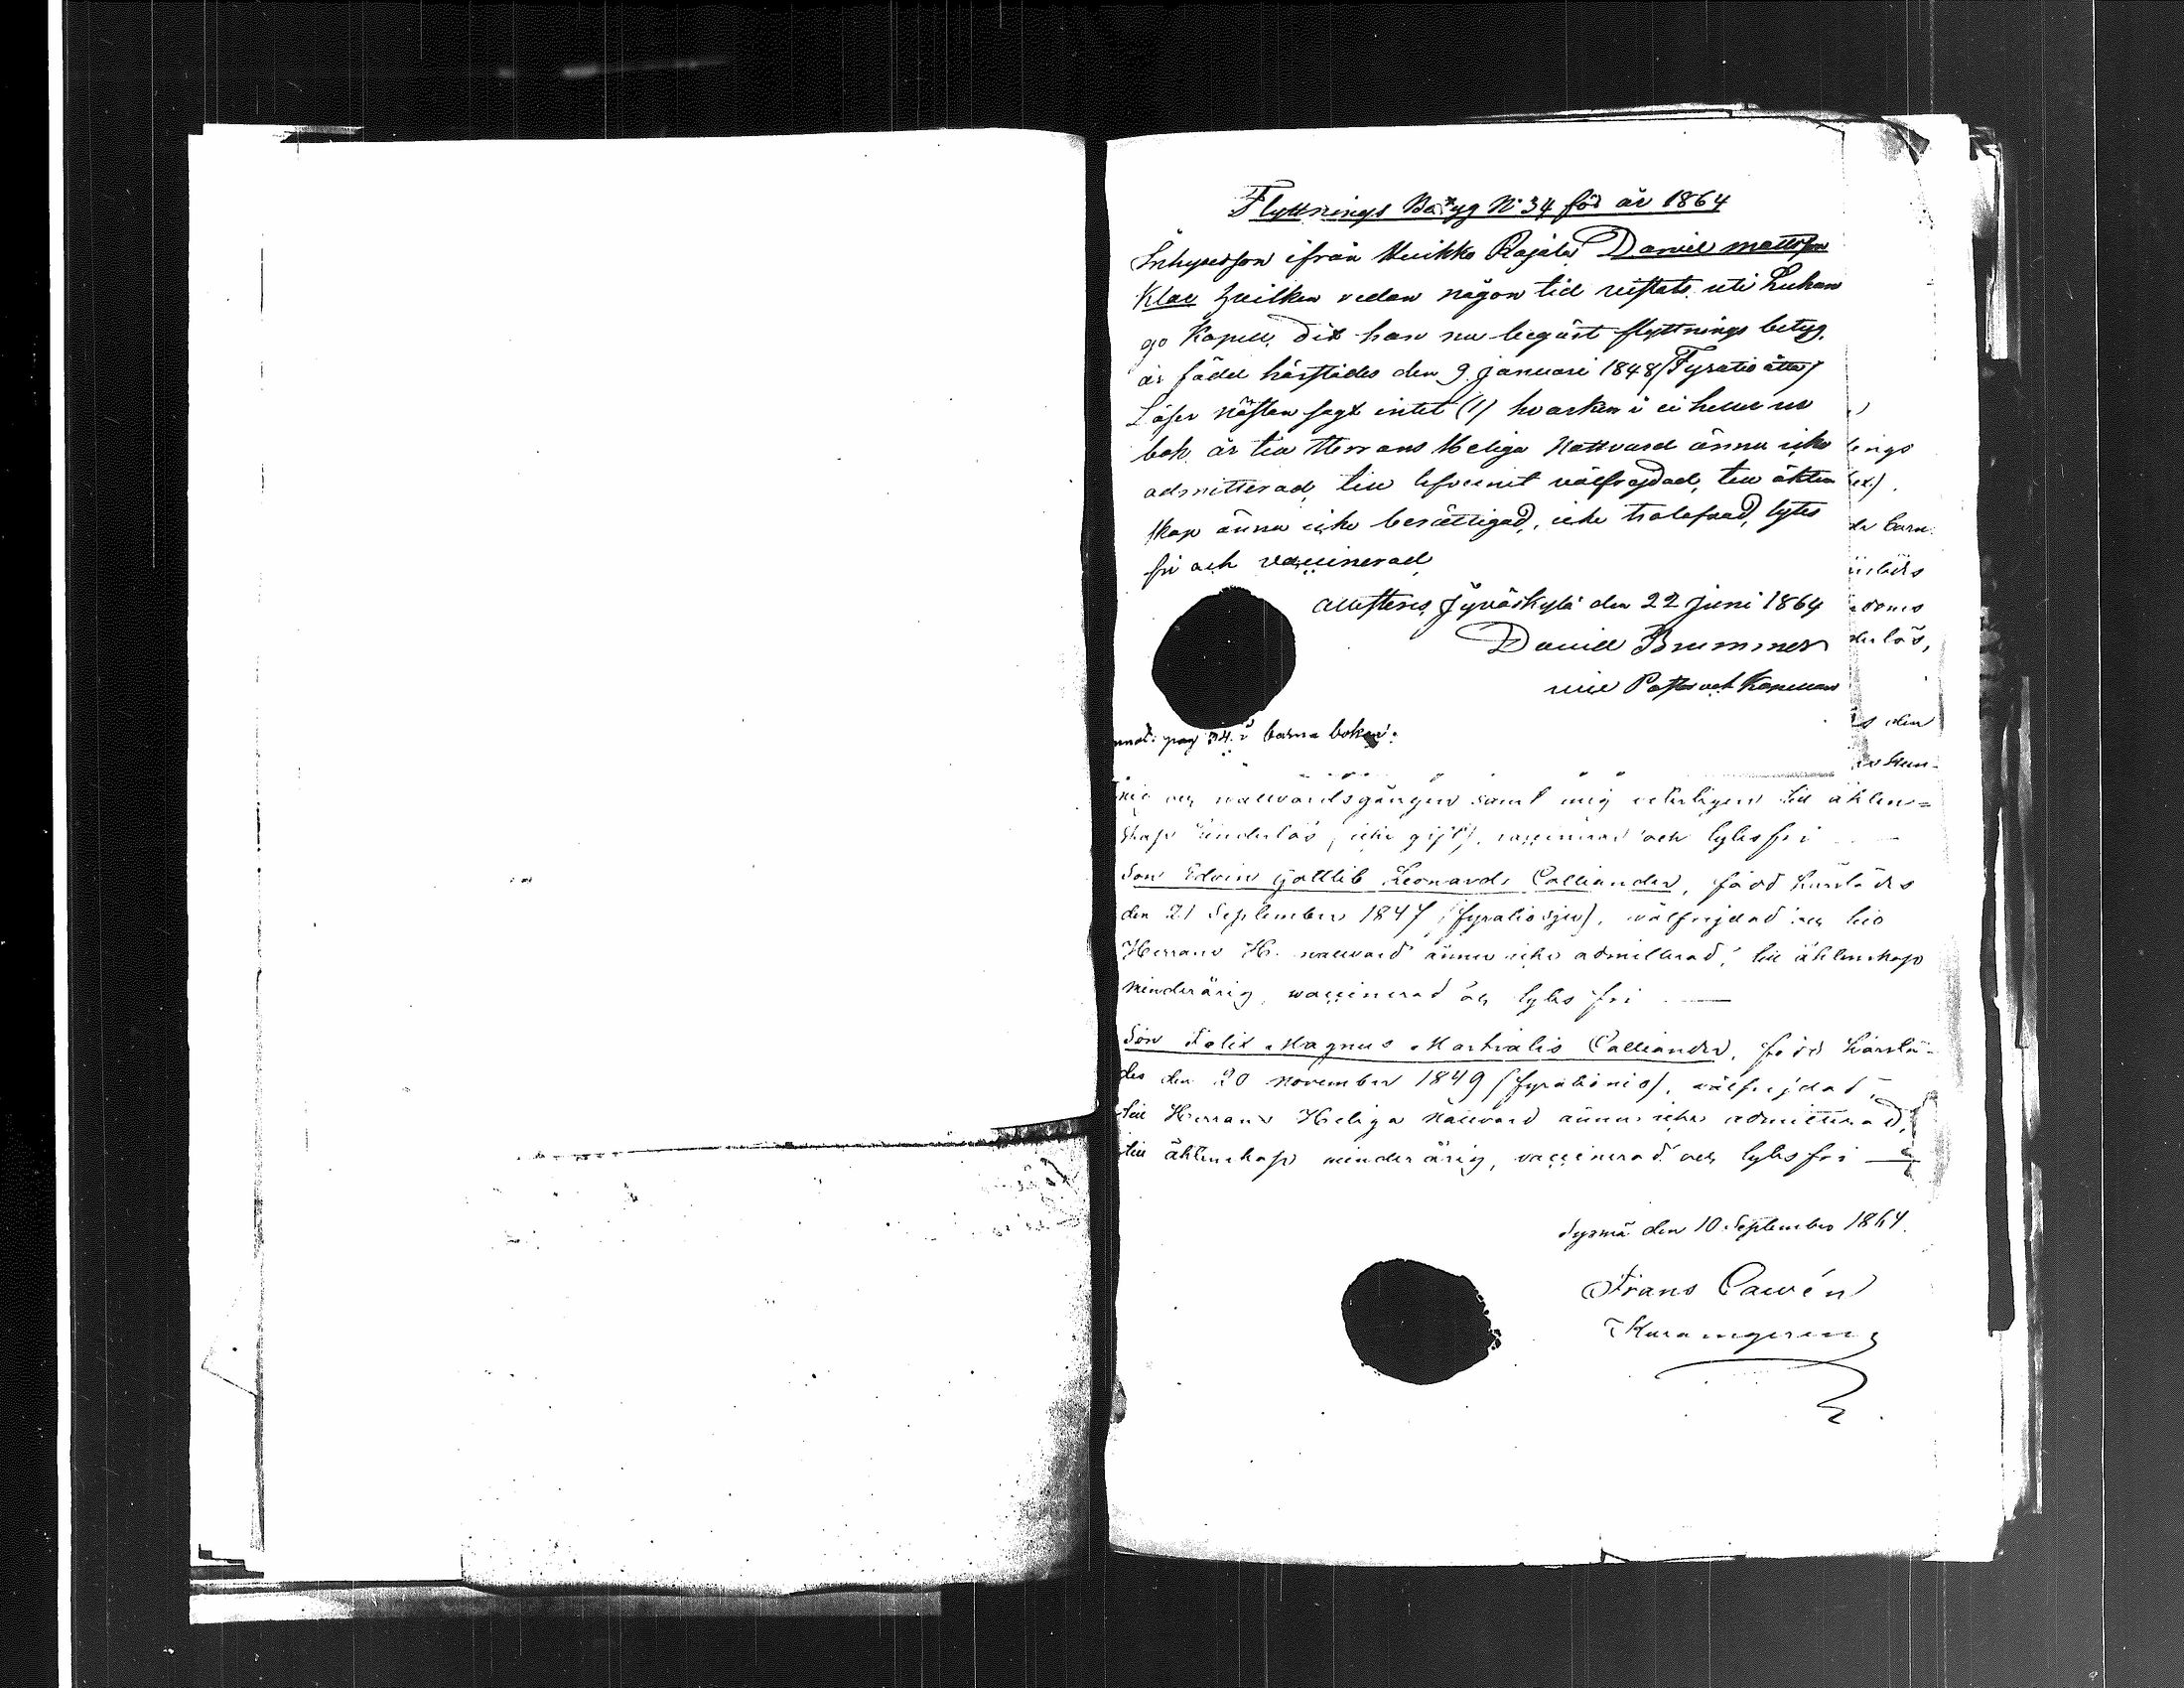 Flyttnings Betyg N:o 34 för år 1864
Inhyseson ifrån Muikko Rajala Daniel Mattsson
Klae hvilken redan någon tid vistats uti Luhan
go Kapell, dit han nu begärt flyttnings betyg,
är född härstädes den 9 Januari 1848 (Fyratioåtta)
Läser nästan sagt intet (1) hvarken i ei heller ur
bok är till Herrans Heliga Nattvard ännu icke
admitterad, till lefvernet välfrejdad, till äkten
skap ännu icke berättigad, icke trolofvad, lytes
fri och vaccinerad
attesteras, Jyväskylä den 22 Juni 1864
Daniel Brummer
vice Pastor och Kapellan
pag 34. i barna boken.
ings
de barn
den
nattvardsgången samt mig veterligen till äkten=
skap hinderlös, icke gift, vaccinerad och lytesfri
Son Edvin Gottlib Leonard Calliander, född härstädes
den 21 September 1847 (fyratiosju), välfrejdad och till
Herrans H. nattvard ännu icke admitterad, till äktenskap
minderårig, vaccinerad och lytes fri
Son Felix Magnus Martialis Calliander, född härstä-
des den 20 November 1849 (fyrationio), välfrejdad,
till Herrans Heliga Nattvard ännu icke admitterad,
till äktenskap minderårig, vaccinerad och lytesfri
Sysmä den 10 September 1864.
Frans Cawén